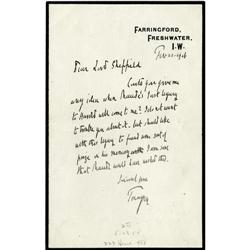 FARRINGFORD,
FRESHWATER,
I.W.
Dear Lord Sheffield
Could you give me
any idea when Maude's last legacy
to Harold will come to me? I do not want
to trouble you about it, but should like
with this legacy to found some sort of
prize in his memory I am sure
that Maude would have wished this.
Tennyson